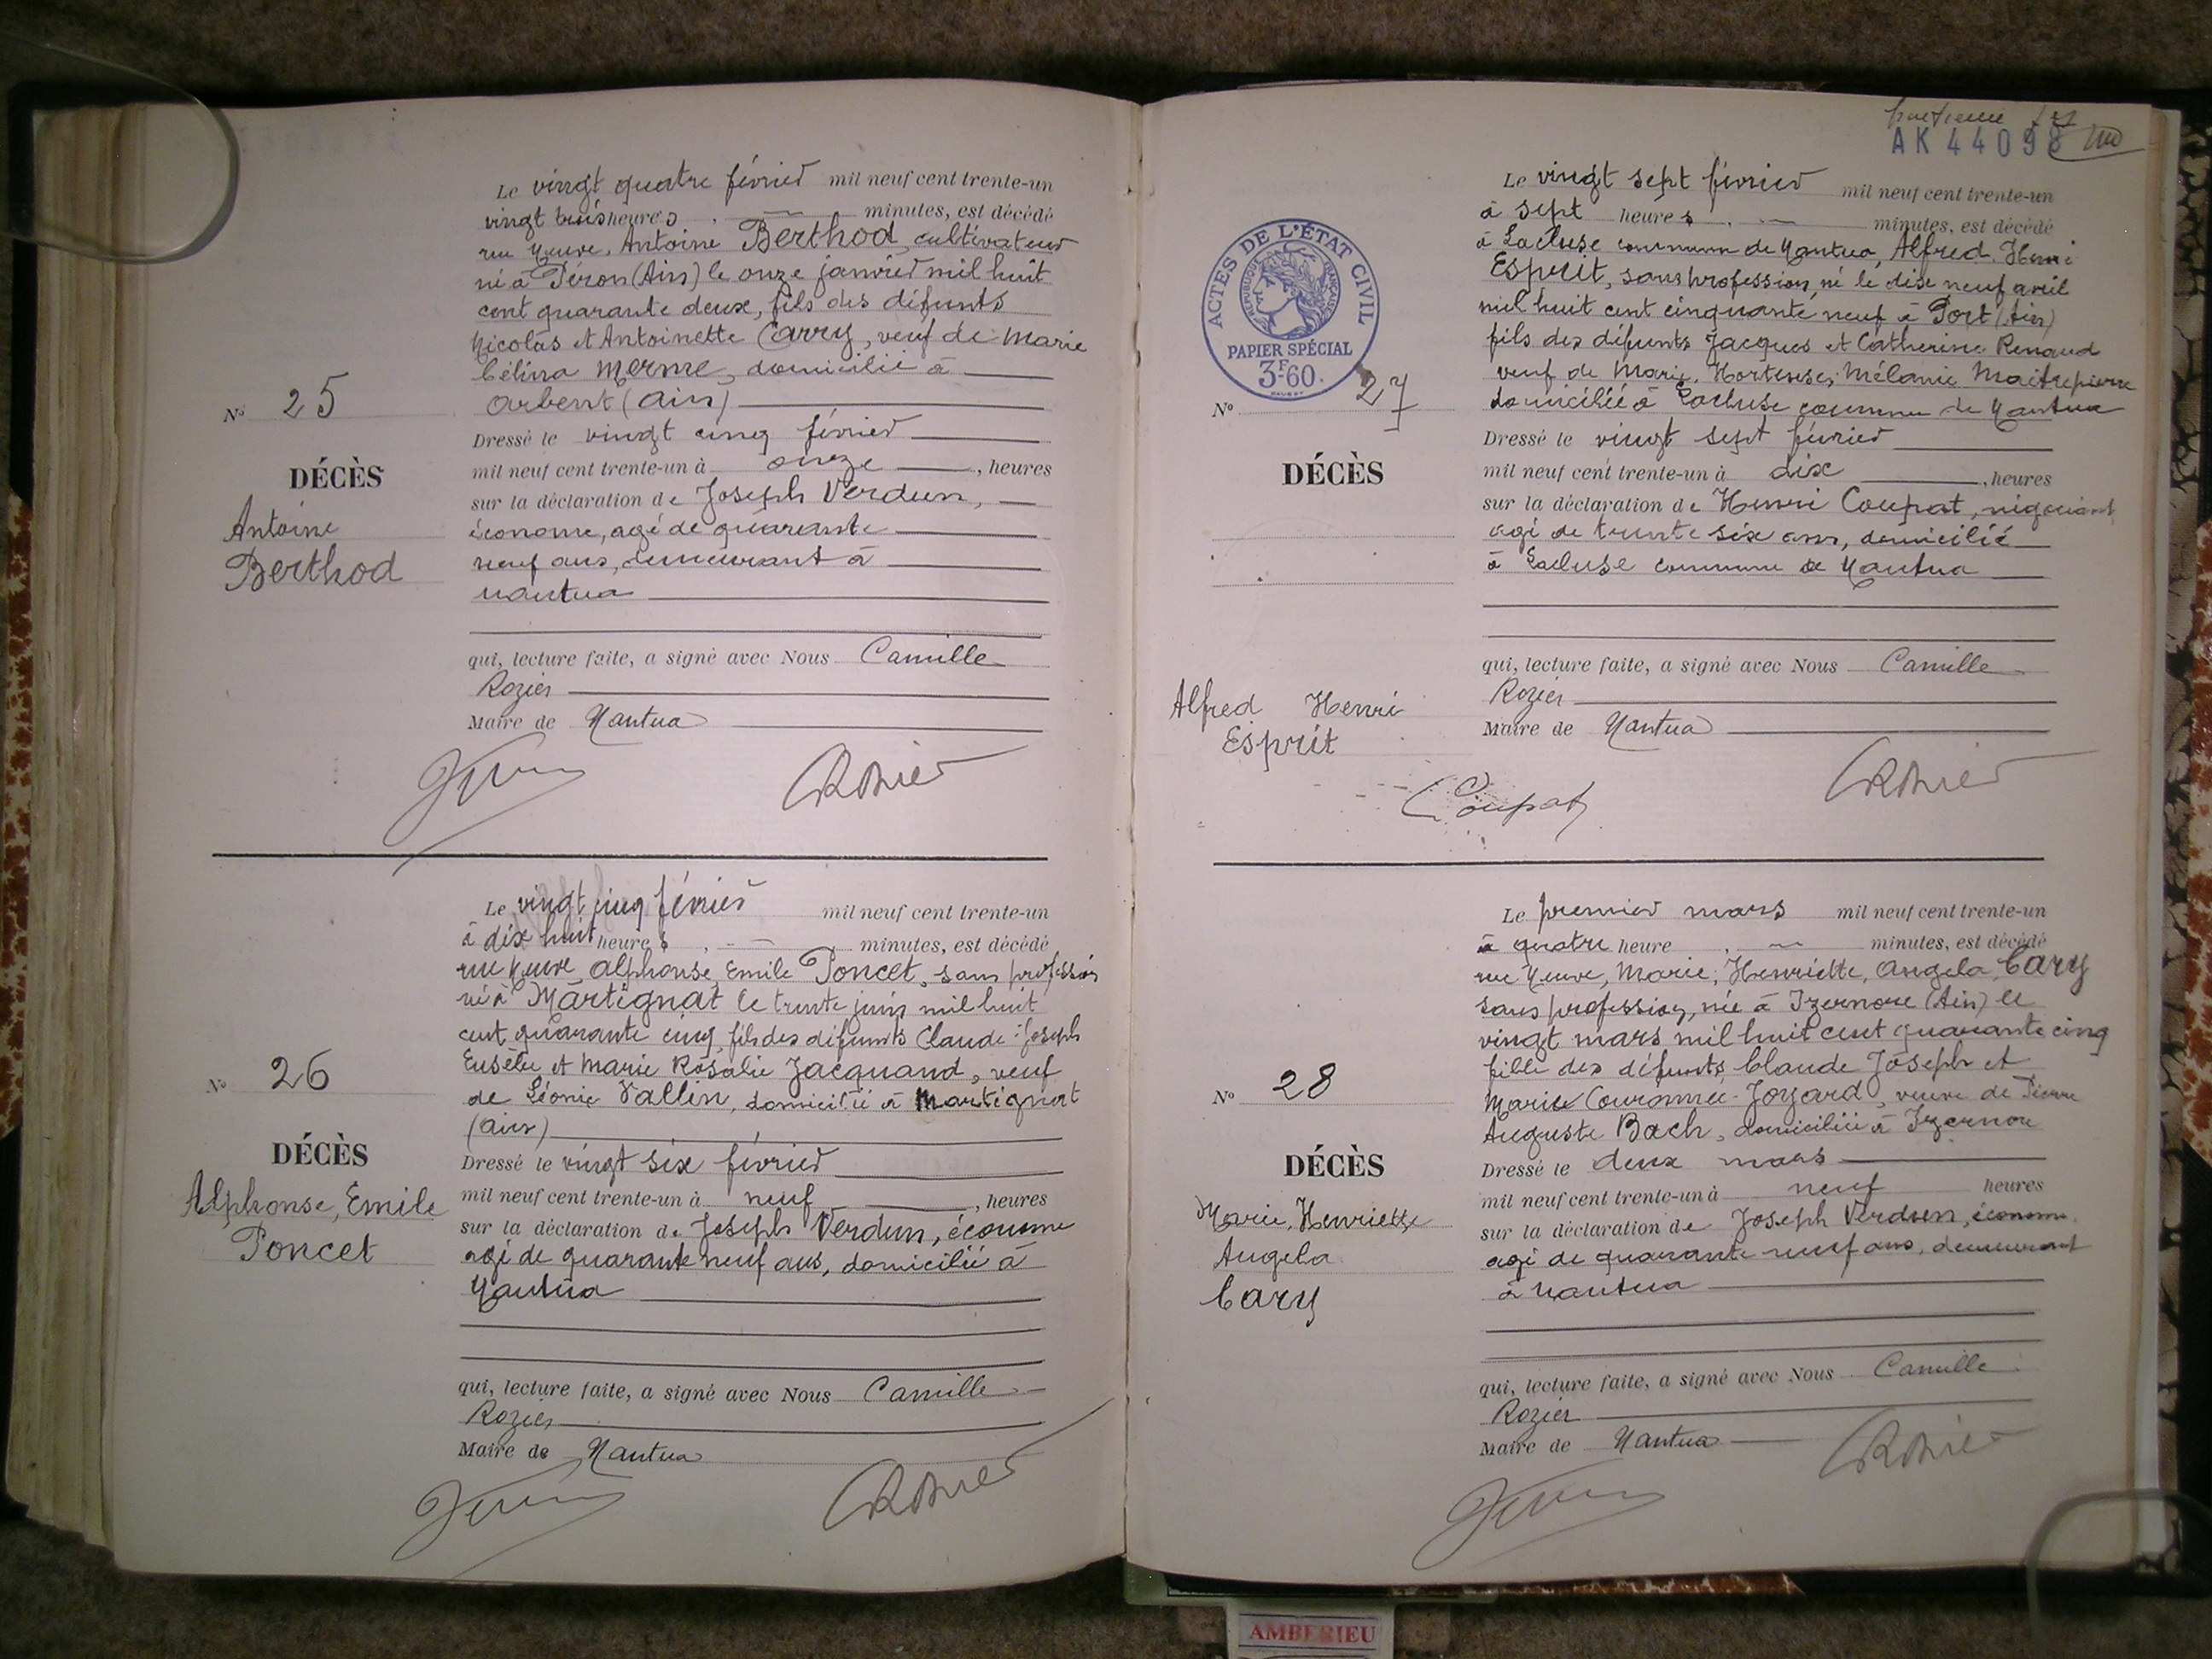 Le vingt quatre février mil neuf cent trente-un
vingt trois heures . — minutes, est décédé
rue Neuve, Antoine Berthod, cultivateur
né à Péron (Ain) le onze janvier mil huit
cent quarante deux, fils des défunts
Nicolas et Antoinette Carry, veuf de Marie
Célina Merme, domicilié à
Arbent (Ain)
N° 25
Dressé le vingt cinq février
DÉCÈS
mil neuf cent trente-un à onze, heures
sur la déclaration de Joseph Verdun,
Antoine
économe, agé de quarante
Berthod
neuf ans, demeurant à
Nantua
qui, lecture faite, a signé avec Nous Camille
Rozier
Maire de Nantua
CRozier
Le vingt cinq février mil neuf cent trente-un
à dix huit heures . — minutes, est décédé
rue Neuve Alphonse, Emile Poncet, sans profession
né à Martignat le trente juin mil huit
cent quarante cinq, fils des défunts Claude-Joseph
Eusèbe et Marie Rosalie Jacquand, veuf
N° 26
de Léonie Vallin, domicilié à Martignat
(Ain)
DÉCÈS
Dressé le vingt six février
Alphonse, Emile
mil neuf cent trente-un à neuf, heures
Poncet
sur la déclaration de Joseph Verdun, économe
agé de quarante neuf ans, domicilié à
Nantua
qui, lecture faite, a signé avec Nous Camille
Rozier
Maire de Nantua
CRozier
AK 44098
ACTES DE L'ÉTAT CIVIL
RÉPUBLIQUE FRANÇAISE
PAPIER SPÉCIAL
3F60.
Le vingt sept février mil neuf cent trente-un
à sept heures . — minutes, est décédé
à Lacluse commune de Nantua, Alfred, Henri
Esprit, sans profession, né le dix neuf avril
mil huit cent cinquante neuf à Port (Ain)
fils des défunts Jacques et Catherine Renaud
veuf de Marie, Hortense, Mélanie Maitrepierre
domiciliée à Lacluse commune de Nantua
N° 27
Dressé le vingt sept février
DÉCÈS
mil neuf cent trente-un à dix, heures
sur la déclaration de Henri Coupat, négociant
agé de trente six ans, domicilié
à Lacluse commune de Nantua
qui, lecture faite, a signé avec Nous Camille
Alfred Henri
Rozier
Esprit
Maire de Nantua
Coupat
CRozier
Le premier mars mil neuf cent trente-un
à quatre heure . — minutes, est décédé
rue Neuve, Marie, Henriette, Angela Cary
sans profession, née à Izernore (Ain) le
vingt mars mil huit cent quarante cinq
fille des défunts Claude Joseph et
N° 28
Marie Couronnée Joyard, veuve de Pierre
Auguste Bach, domiciliée à Izernore
DÉCÈS
Dressé le deux mars
Marie, Henriette
mil neuf cent trente-un à neuf heures
Angela
sur la déclaration de Joseph Verdun, économe
Cary
agé de quarante neuf ans, demeurant
à Nantua
qui, lecture faite, a signé avec Nous Camille
Rozier
Maire de Nantua
CRozier
AMBERIEU